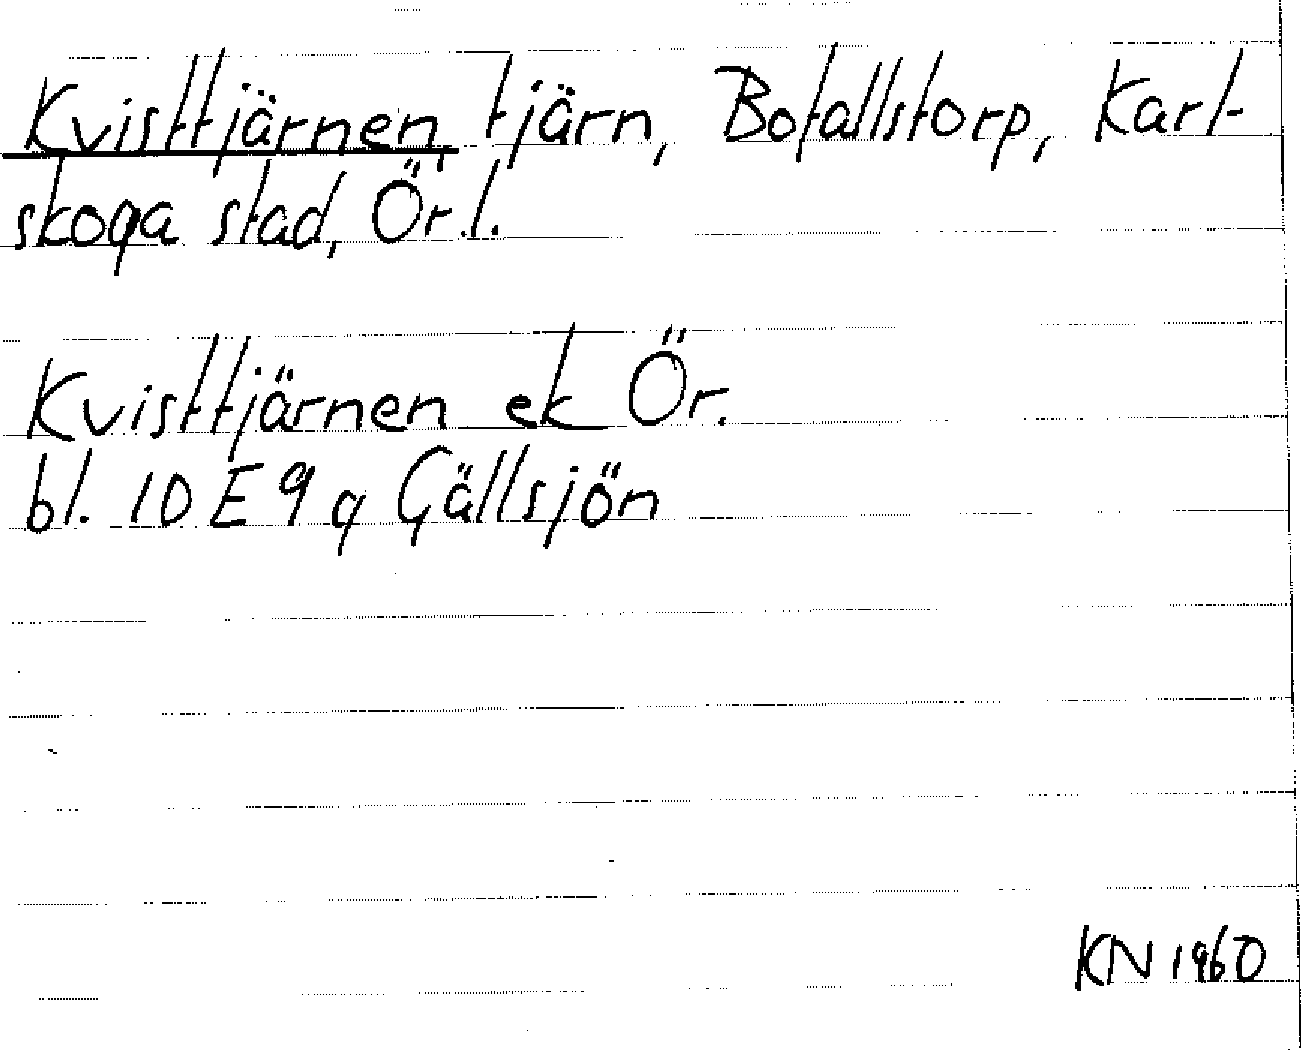 Kvisttjärnen, tjärn, Bofallstorp, Karl-
skoga stad, Ör.l.
Kvisttjärnen ek Ör.
bl. 10 E 9 g Gällsjön
KN 1960